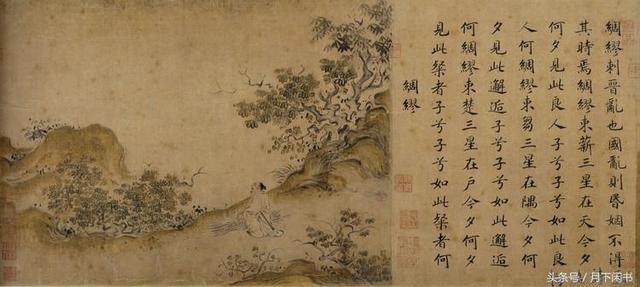 綢繆刺晉亂也國亂則昬姻不得
其時焉綢繆束薪三星在天今夕
何夕見此良人子兮子兮如此良
人何綢繆束芻三星在隅今夕何
夕見此邂逅子兮子兮如此邂逅
何綢繆束楚三星在戶今夕何夕
見此粲者子兮子兮如此粲者何
綢繆
头条号 / 月下闲书